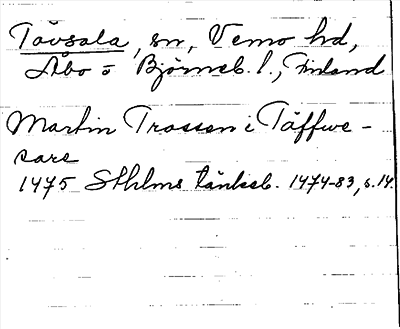 Tövsala, sn, Vemo hd,
Åbo o Björneb. l., Finland
Martin Trossen i Töffwe-
sare
1475 Sthlms tänkeb. 1474-83, s. 14.